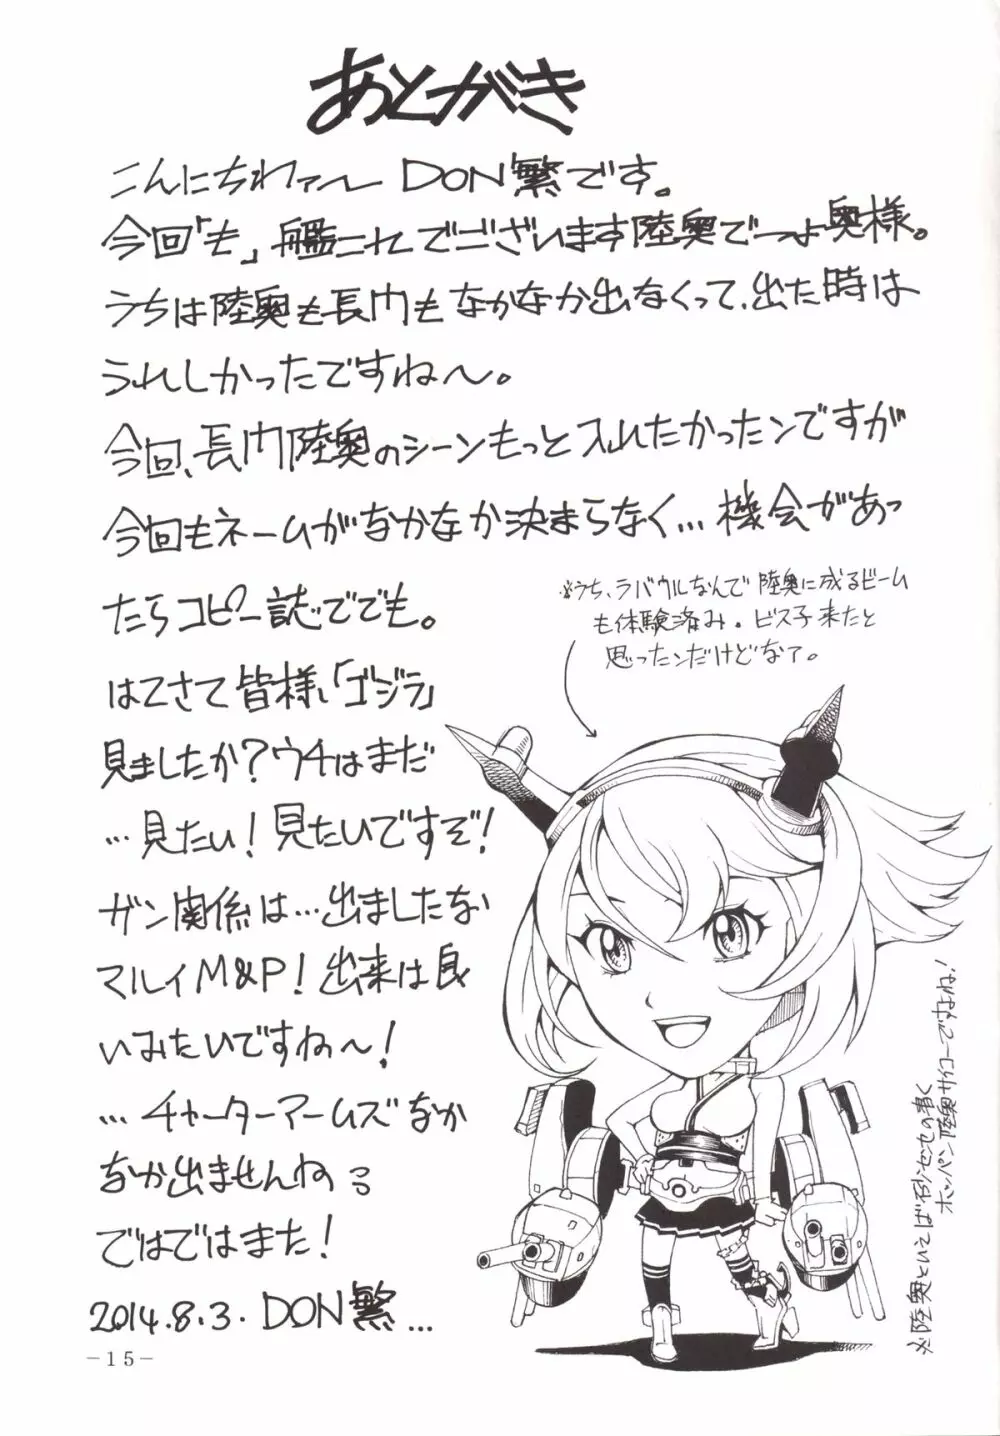 あとがき
こんにちわァ〜 DON繁です。
今回「も」艦これでございます陸奥でつよ奥様。
うちは陸奥も長門もなかなか出なくって、出た時は
うれしかったですね〜。
今回、長門陸奥のシーンもっと入れたかったンですが
今回もネームがなかなか決まらなく…機会があっ
たらコピー誌ででも。
※うち、ラバウルなんで陸奥に成るビーム
も体験済み。ビス子来たと
思ったンだけどなァ。
はてさて皆様、「ゴジラ」
見ましたか？ウチはまだ
…見たい！見たいですぞ！
ガン関係は…出ましたな
マルイM&P！出来は良
いみたいですね〜！
…チャーターアームズなか
なか出ませんねっ
ではではまた！
2014.8.3. DON繁…
※陸奥といえば
ポッパン陸奥サイコーですよね！
-15-